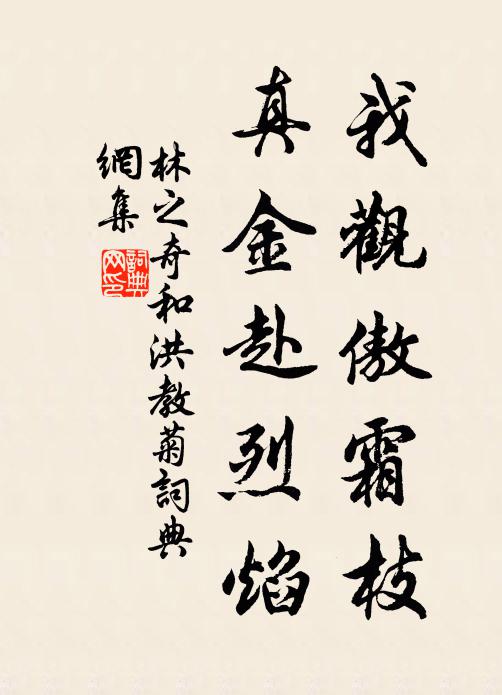 我觀傲霜枝
真金赴烈焰
林之奇和洪教菊詞典
網集
詞典网印